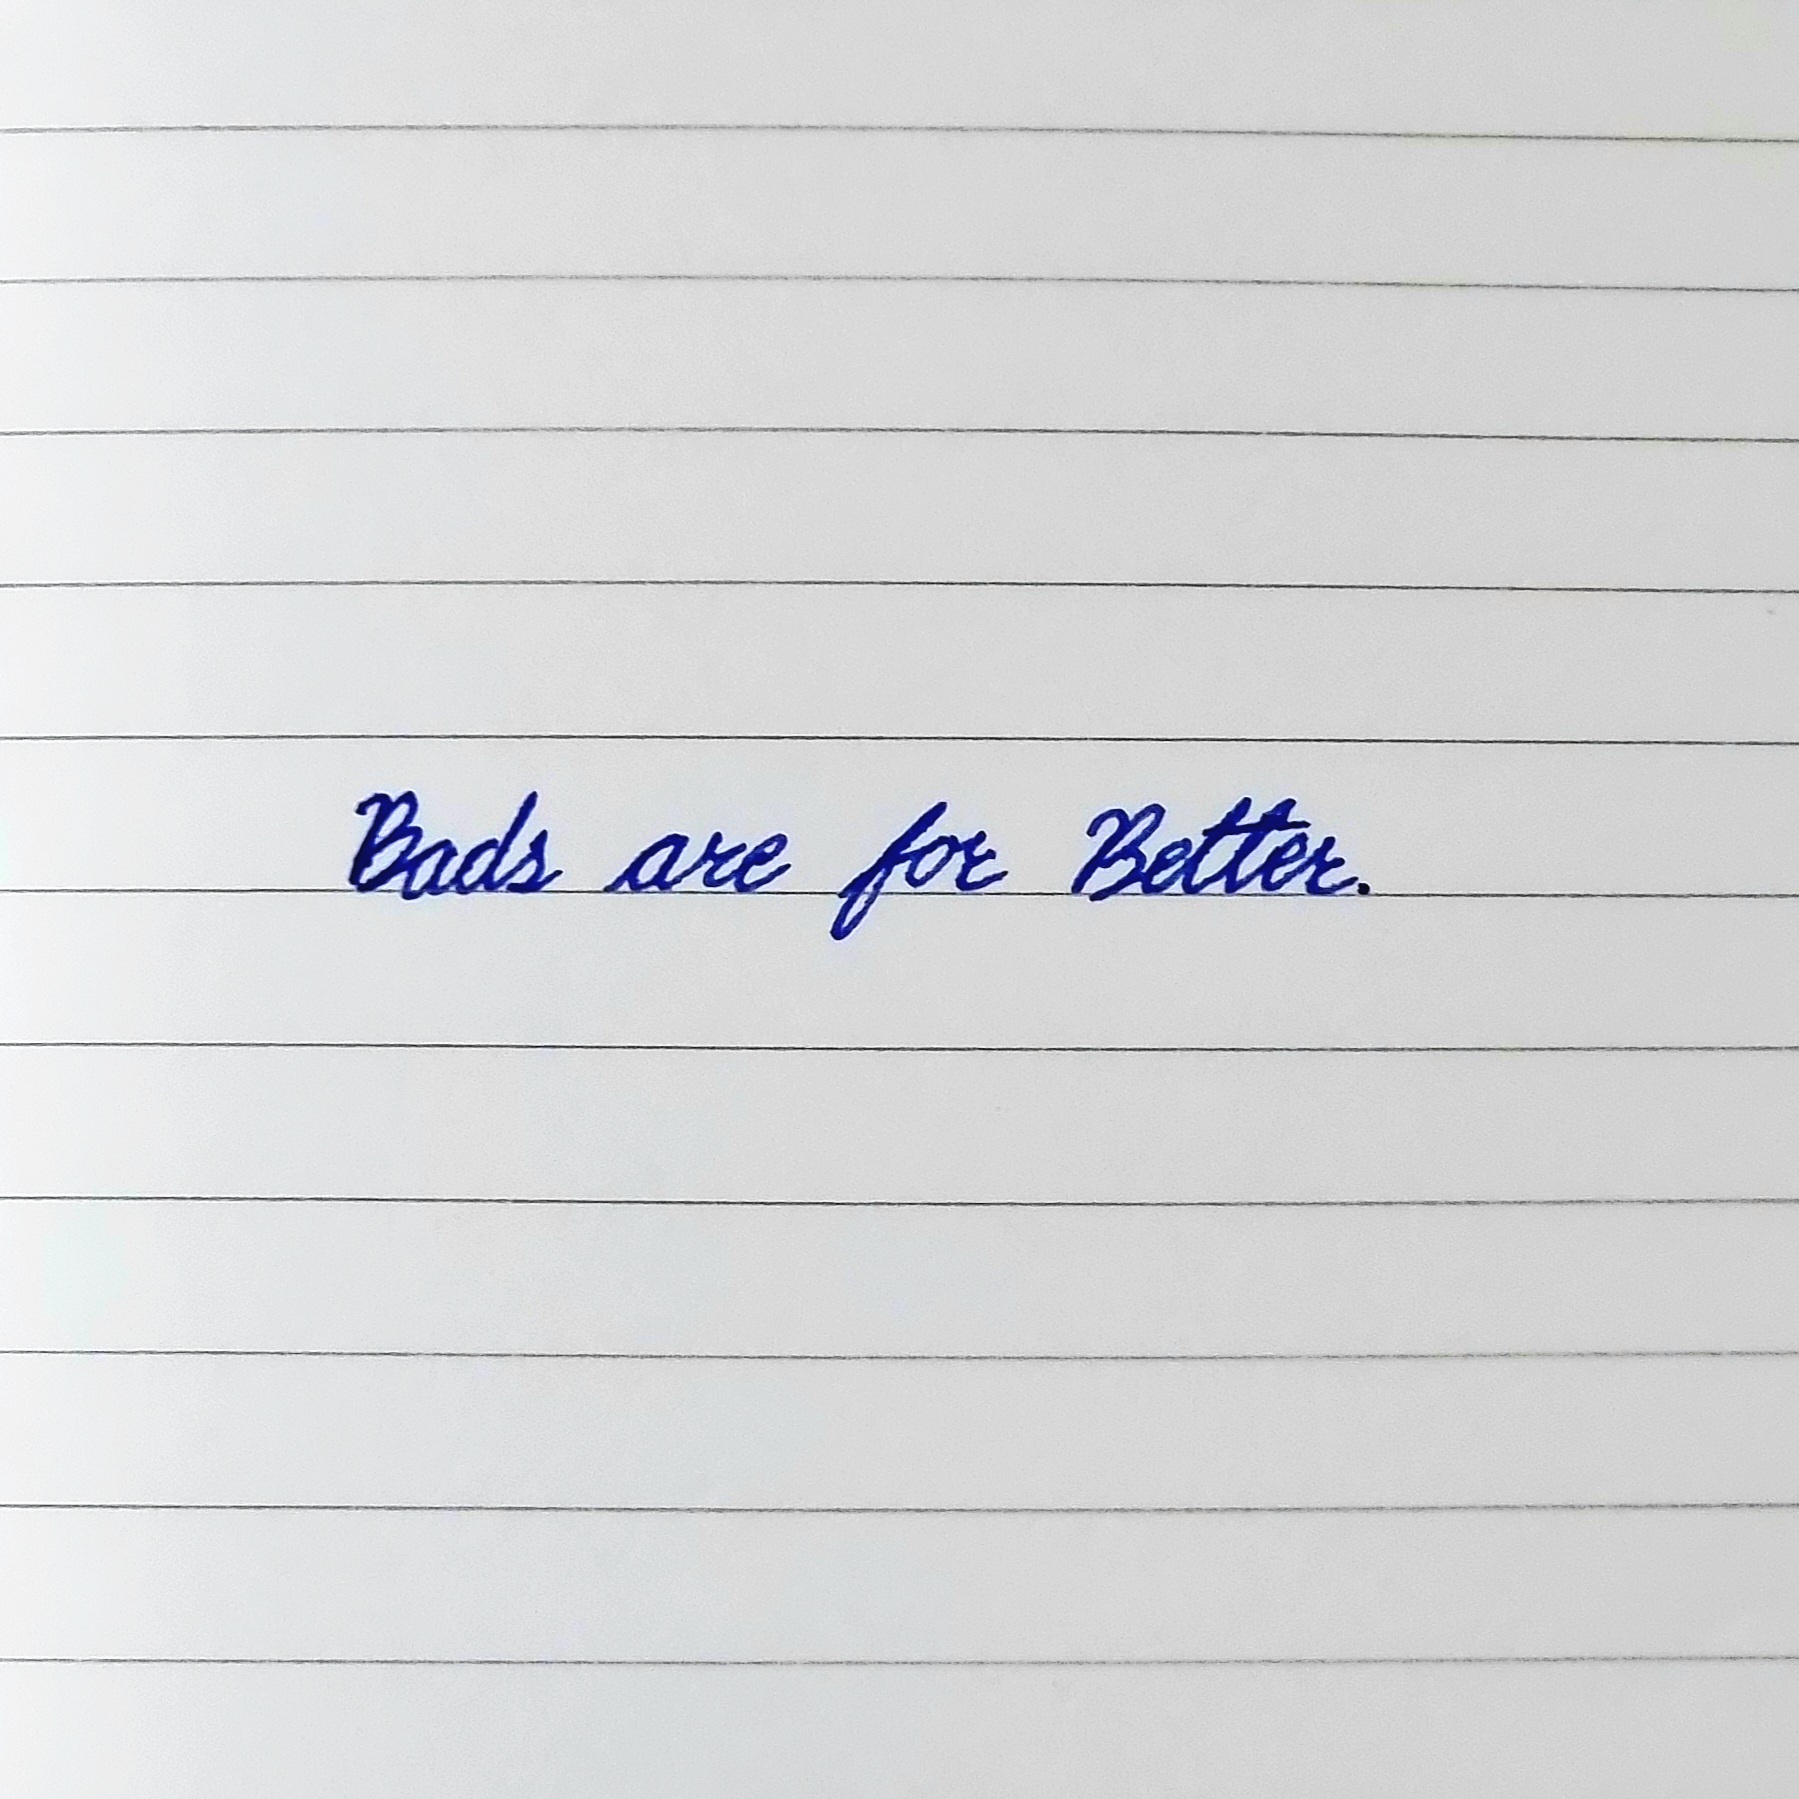 Bads are for Better.